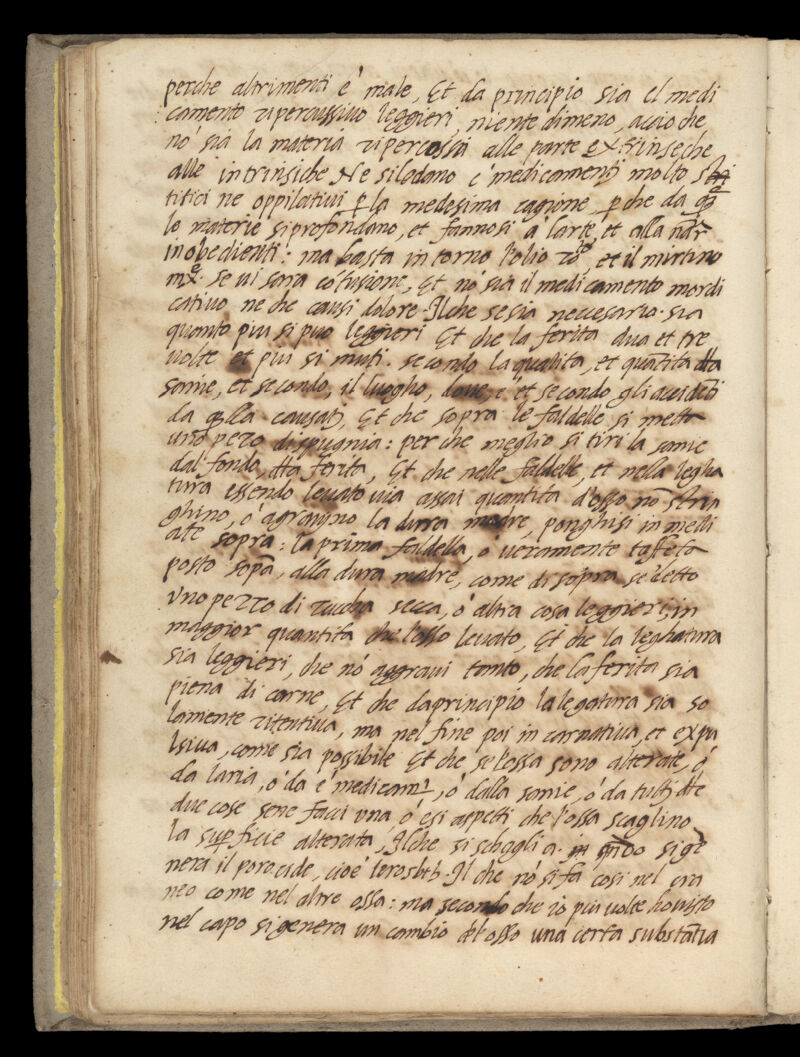 perche altrimenti e' male, Et da principio sia el medi
camento ripercussiuo leggieri, niente dimeno, accio che
nō sia la materia ripercossa alle parte extrinseche
alle intrinsiche Ne si lodano e' medicamenti molto
titici ne oppilatiui p la medesima cagione, p che da
le materie si profondano, et fannosi a larte, et alla
inobedienti: ma basta intorno l'olio ro, et il mirtino
se ui sara cōtusione, Et nō sia il medicamento mordi
catiuo ne che causi dolore. Il che se sia neccesario. sia
quanto piu si puo leggieri Et che la ferita dua et tre
uolte et piu si muti. secondo la qualita, et quātita dta
sanie, et secondo, il luogho, doue, e' et secondo gli accidēti
da qlla causati, Et che sopra le faldelle si mett
uno pezo di spugnia: per che meglio si tiri la sanie
dal fondo, dta ferita, Et che nelle faldelle, et nella legha
tura essendo leuato uia assai quantita d'osso nō strin
ghino, o' agrauino la dura madre, ponghisi in medi
ate sopra: la prima faldella, o' ueramente taffeta
posto sopa, alla dura madre, come di sopra se detto
Vno pezzo di zucha secca, o' altra cosa leggieri, in
maggior quantita che l'osso leuato, Et che la leghatura
sia leggieri, che nō aggraui tanto, che la ferita sia
piena di carne, Et che da principio la legatura sia so
lamente ritentiua, ma nel fine poi in carnatiua, et expu
lsiua, come sia possibile Et che se l'ossa sono alterate, o'
da laria, o' da e' medicamti, o' dalla sanie, o' da tutti dte
due cose sene facci una, o' si aspetti che l'ossa scaglino
la supficie alterata, Il che si schaglia. in qndo si gē
nera il poro cide, cioe' Il che nō si fa cosi nel cra
neo come nel altre ossa: ma secondo che io piu uolte ho uisto
nel capo si genera un cambio del osso una certa substātia